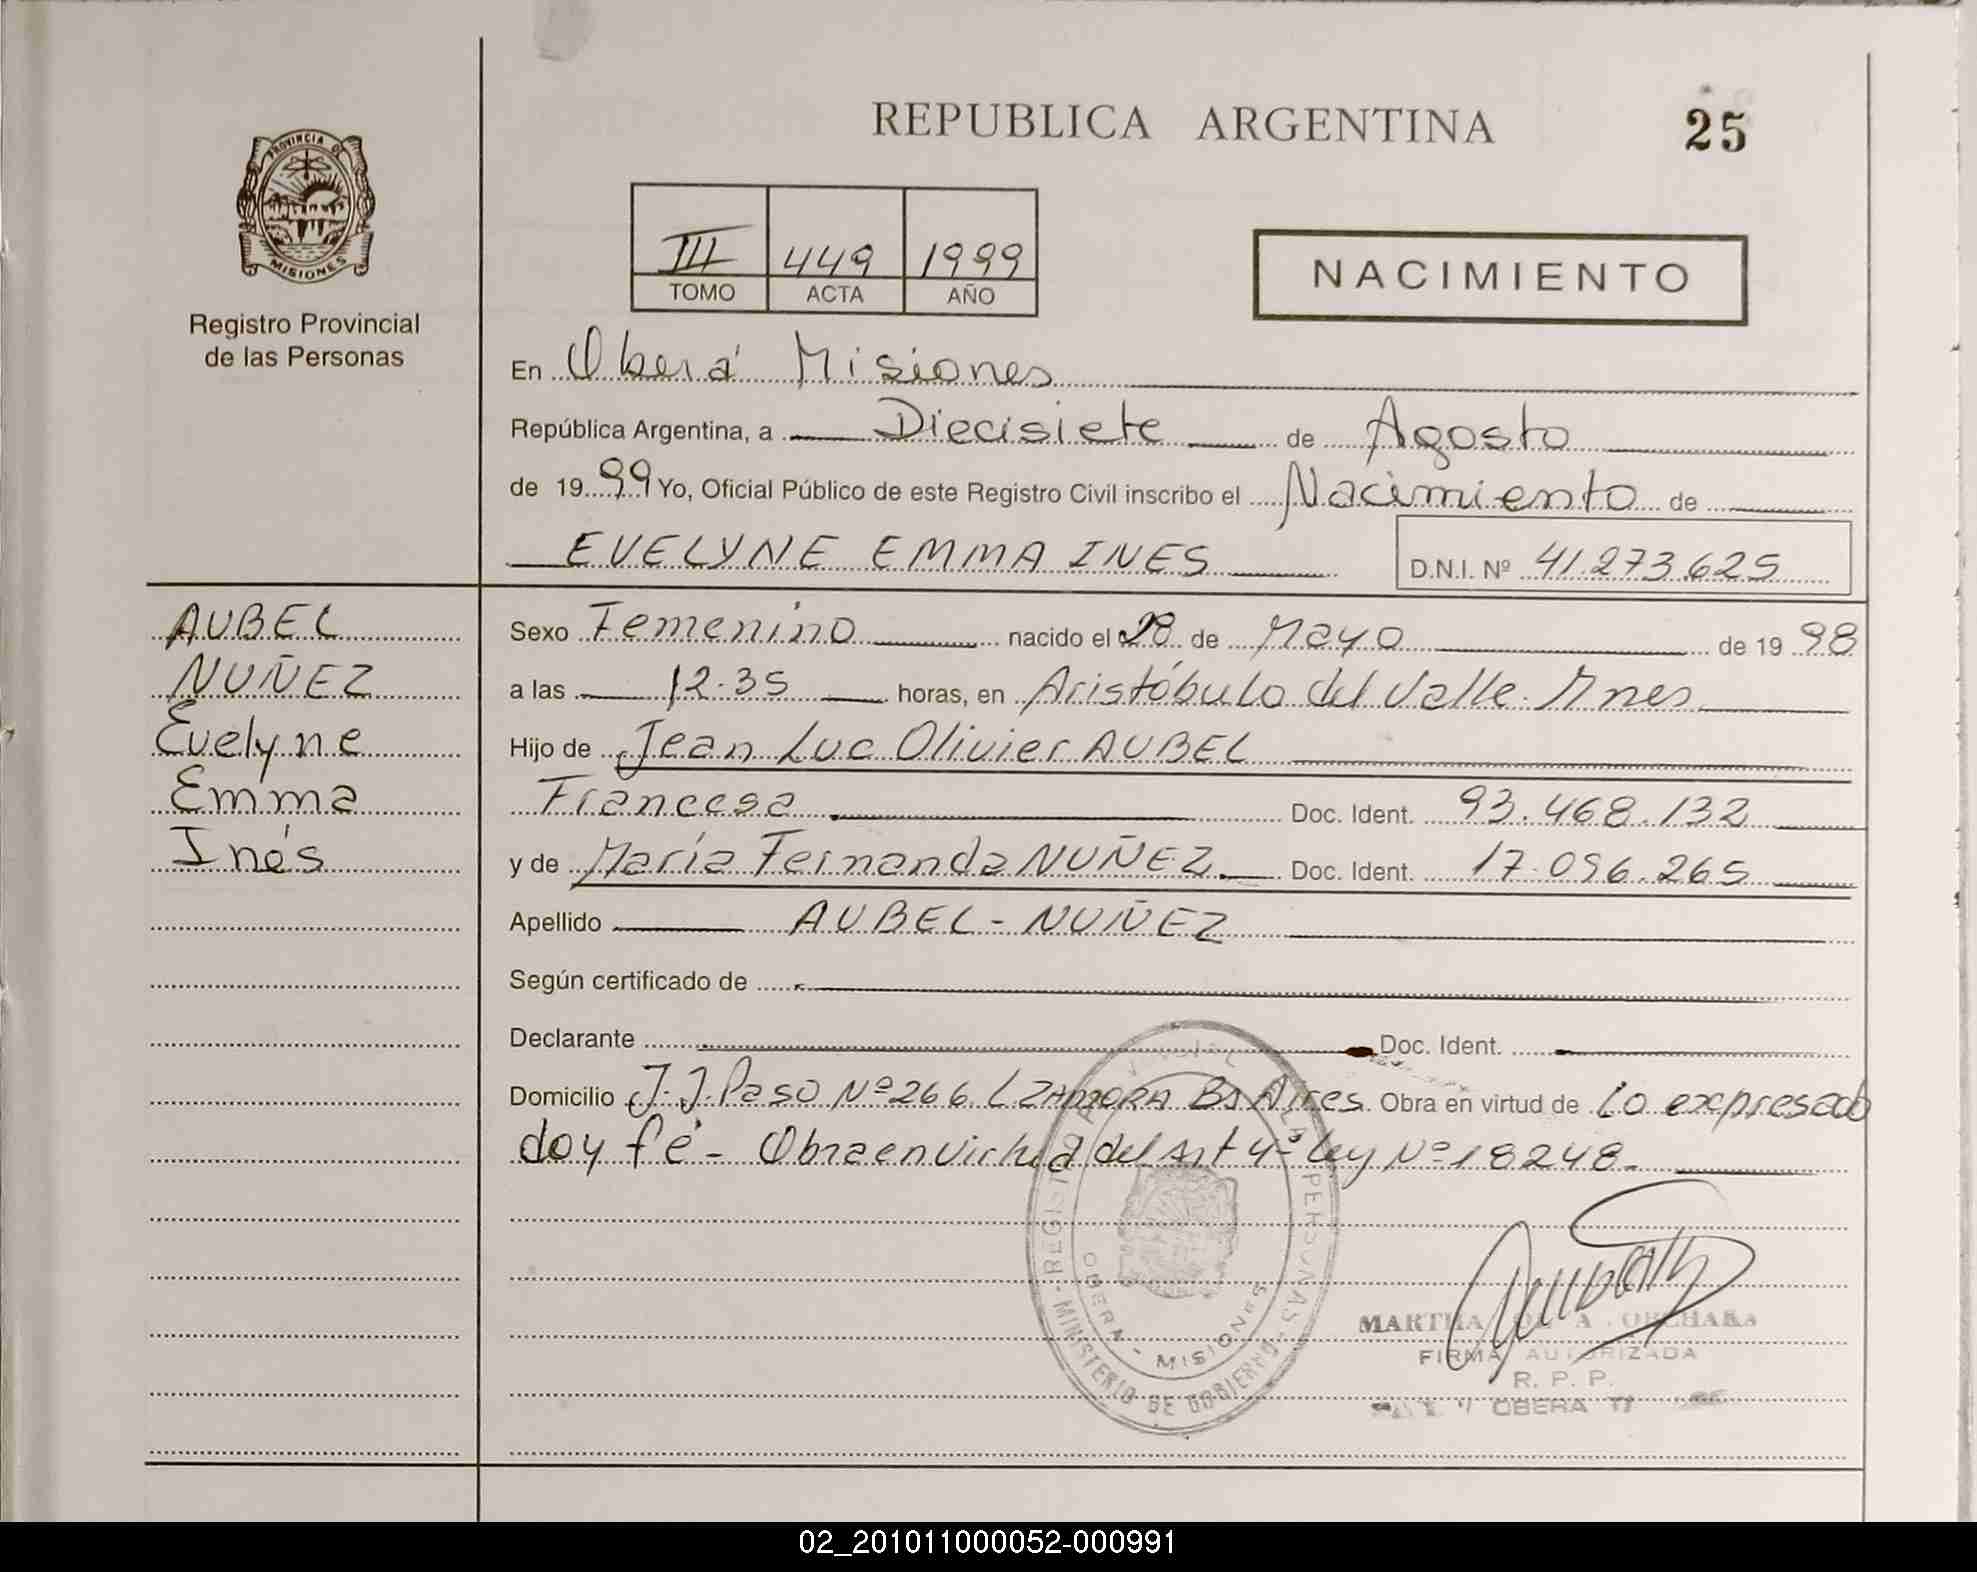 REPUBLICA ARGENTINA
25
PROVINCIA DE
MISIONES
Registro Provincial
de las Personas
III 449 1999
TOMO ACTA AÑO
NACIMIENTO
En Oberá Misiones
República Argentina, a Diecisiete de Agosto
de 1999 Yo, Oficial Público de este Registro Civil inscribo el Nacimiento de
EVELYNE EMMA INES
D.N.I. Nº 41.273.625
AUBEL
NUÑEZ
Evelyne
Emma
Inés
Sexo Femenino nacido el 28 de Mayo de 1998
a las 12.35 horas, en Aristóbulo del Valle. Mnes
Hijo de Jean Luc Olivier AUBEL
Francesa Doc. Ident. 93.468.132
y de María Fernanda NUÑEZ. Doc. Ident. 17.096.265
Apellido AUBEL - NUÑEZ
Según certificado de
Declarante Doc. Ident.
Domicilio J.J. Paso Nº 266 LZAMORA Bs Aires. Obra en virtud de lo expresado
doy fé - Obra en virtud del Art 4º Ley Nº 18248.
PERSONAS
MINISTERIO DE GOBIERNO
OBERA - MISIONES
MARTHA
FIRMA AUTORIZADA
R. P. P.
OBERA
02_201011000052-000991